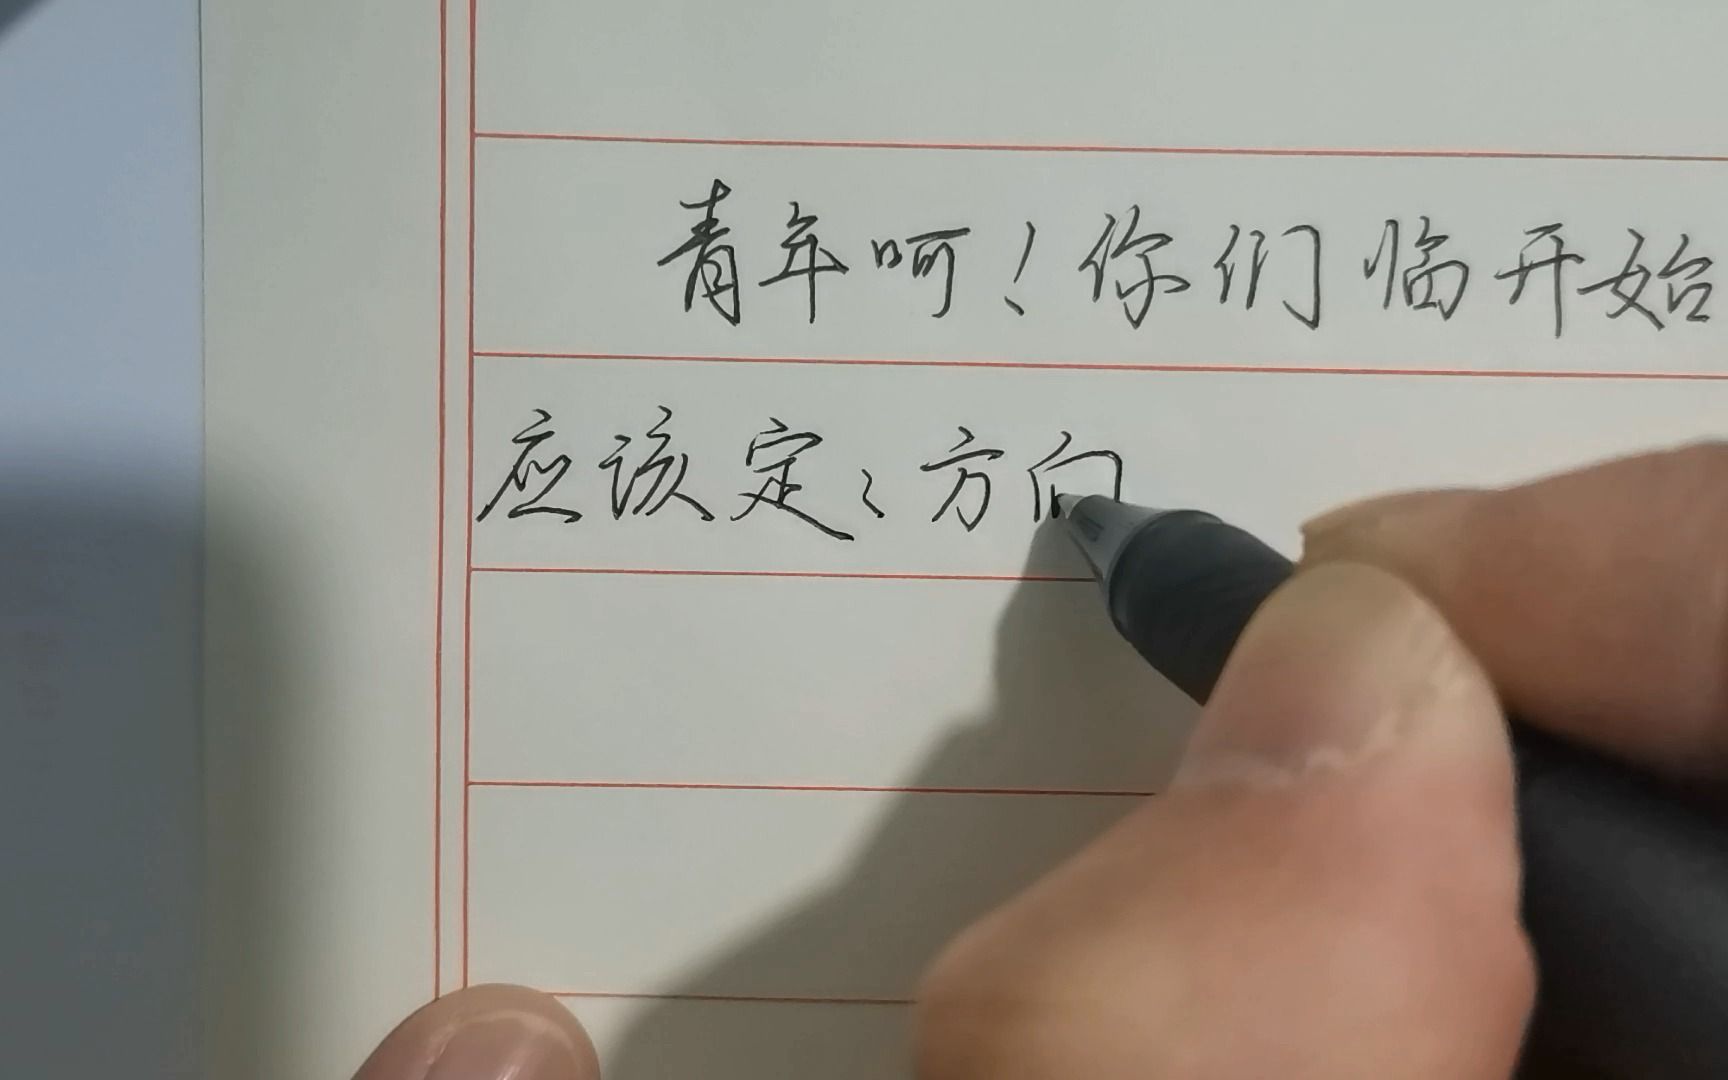 青年呵！你们临开始
应该定定方向